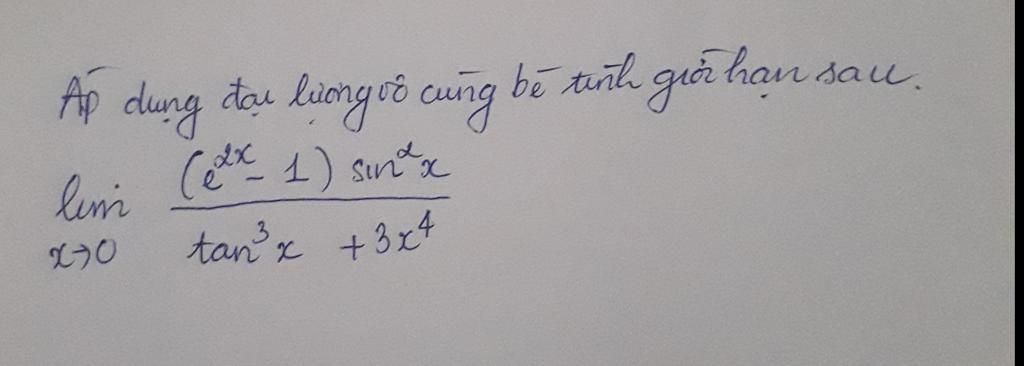 Áp dụng đại lượng vô cùng bé tính giới hạn sau.
lim x→0 (e^2x - 1) sin^2 x / tan^3 x + 3x^4